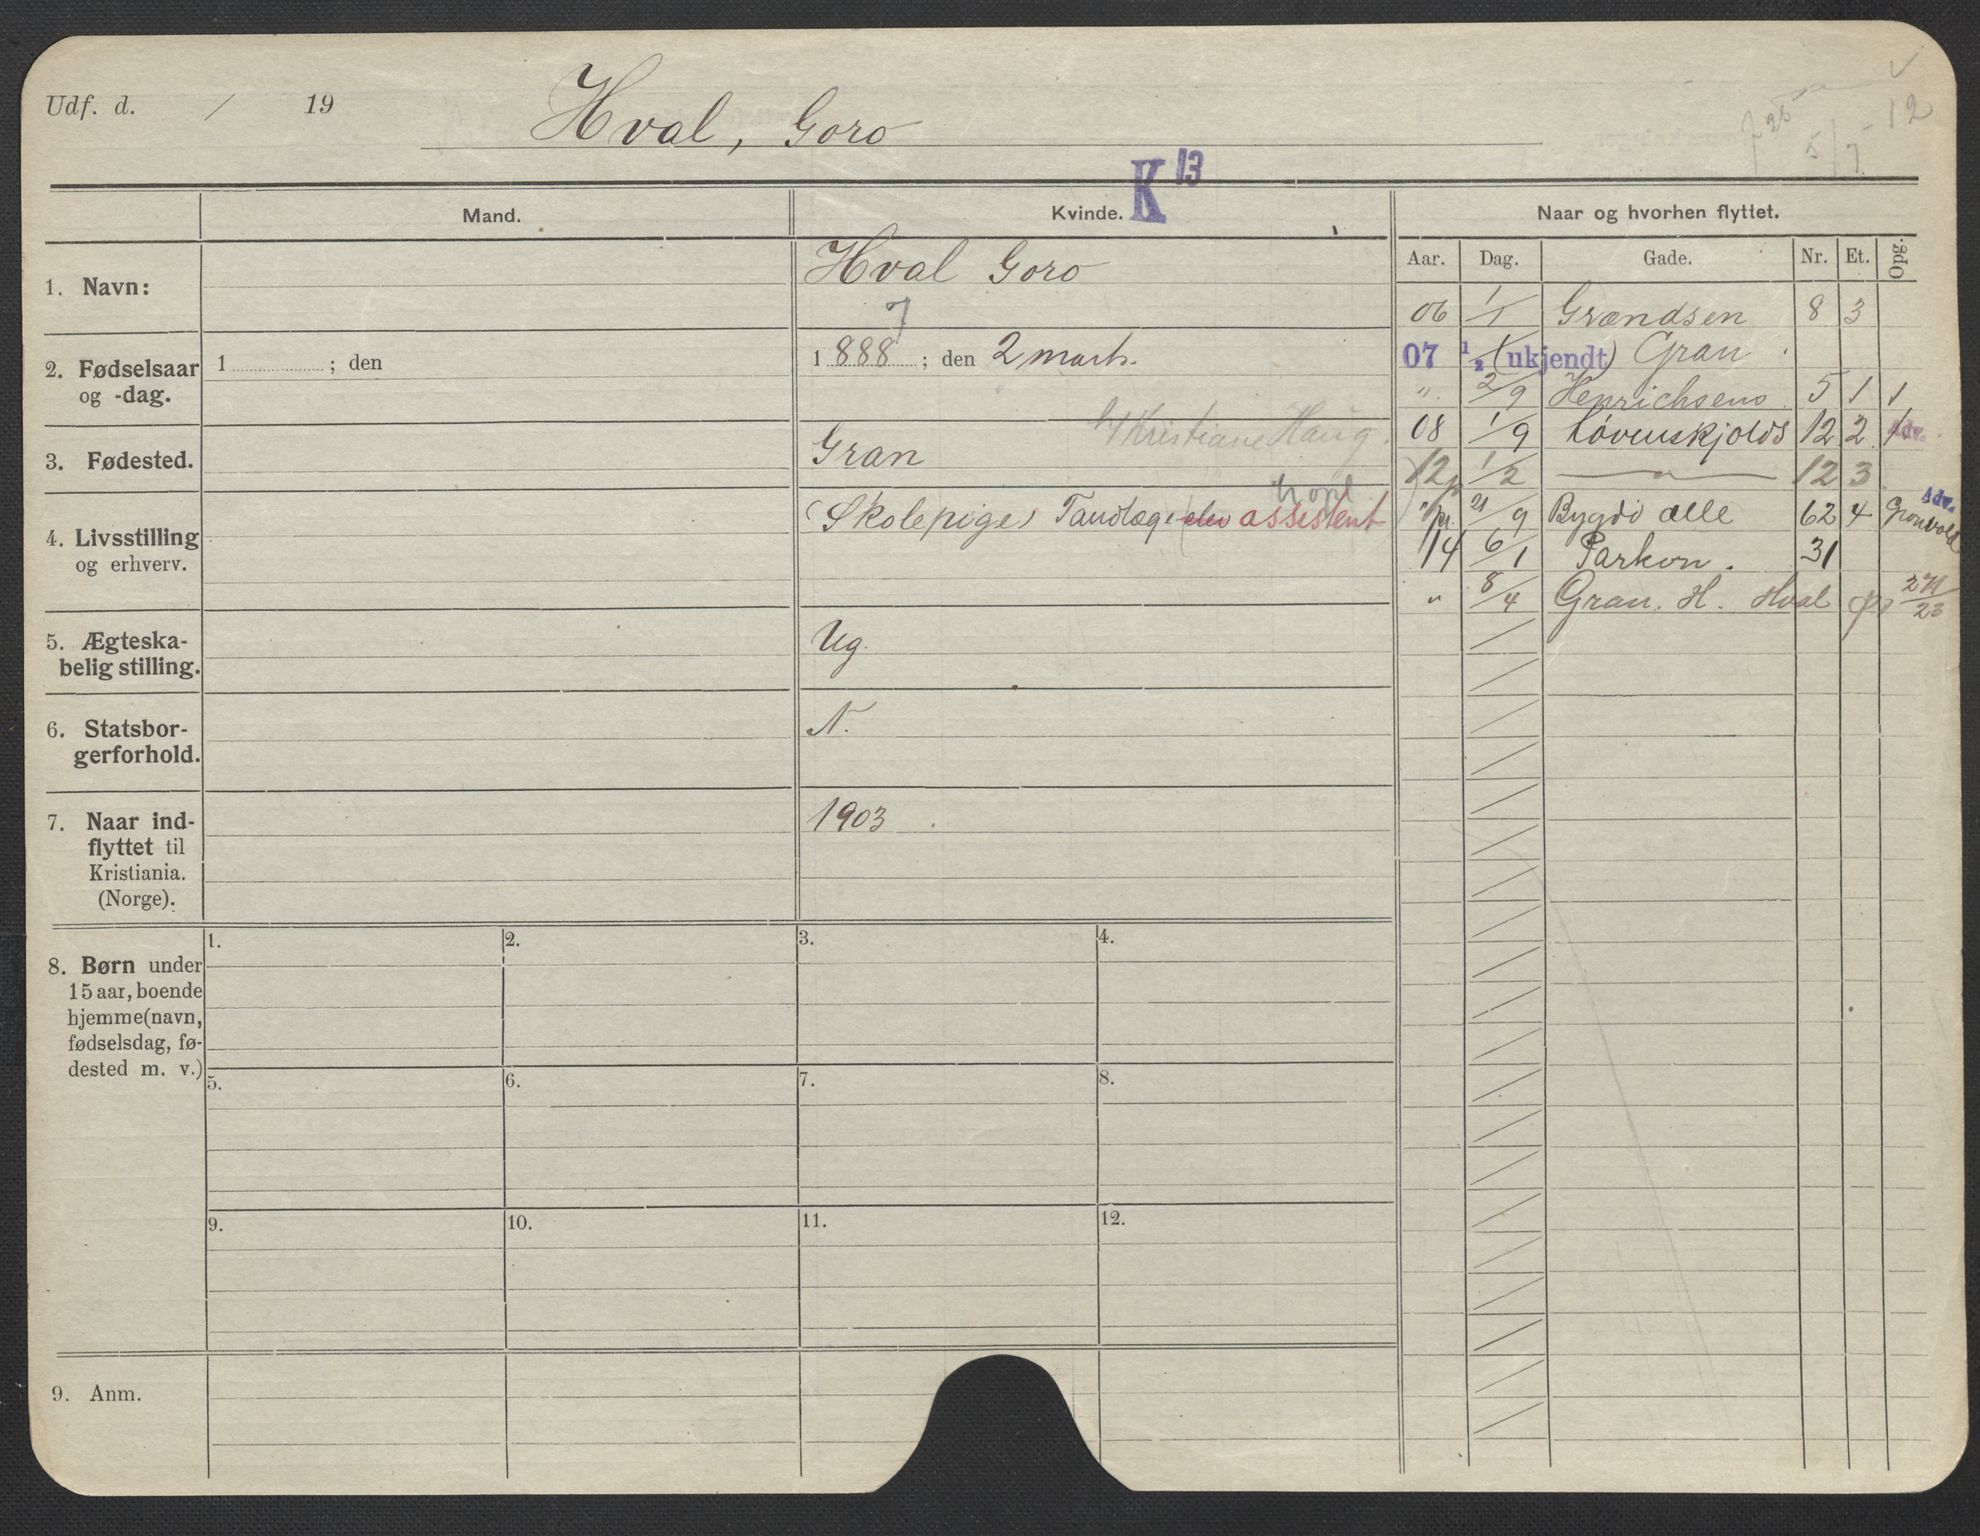 Udf. d. / 19
Hval, Goro
25
5/7 - 12
K 13
Mand.
Kvinde.
Naar og hvorhen flyttet.
Aar. Dag. Gade. Nr. Et. Opg.
1. Navn:
Hval Goro
7
2. Fødselsaar
og -dag.
1 ; den
1888 ; den 2 marts.
3. Fødested.
Gran
Kristiane Haug.
4. Livsstilling
og erhverv.
(Skolepige) Tandlæge elev assistent
5. Ægteska-
belig stilling.
Ug.
6. Statsbor-
gerforhold.
N.
7. Naar ind-
flyttet til
Kristiania.
(Norge).
1903
06 1/1 Grændsen 8 3
07 1/2 (ukjendt) Gran
" 2/9 Henrichsens 5 1 1
08 1/9 Løvenskjolds 12 2 1 Adr.
12 1/2 — " — 12 3
" 21/9 Bygdö alle 62 4 Gronvold Adr.
14 6/1 Parkvn. 31
" 8/4 Gran. H. Hval
8. Børn under
15 aar, boende
hjemme (navn,
fødselsdag, fø-
dested m. v.)
1. 2. 3. 4.
5. 6. 7. 8.
9. 10. 11. 12.
9. Anm.